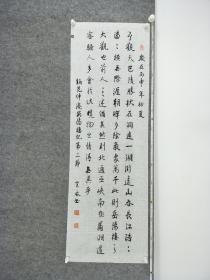 歲在丙申年初夏
予觀夫巴陵勝狀在洞庭一湖銜遠山吞長江浩々
湯々橫無際涯朝暉夕陰氣象萬千此則岳陽樓之
大觀也前人之述備矣然則北通巫峽南極瀟湘遷
客騷人多會於此覽物之情得無異乎
范仲淹岳陽樓記第二節